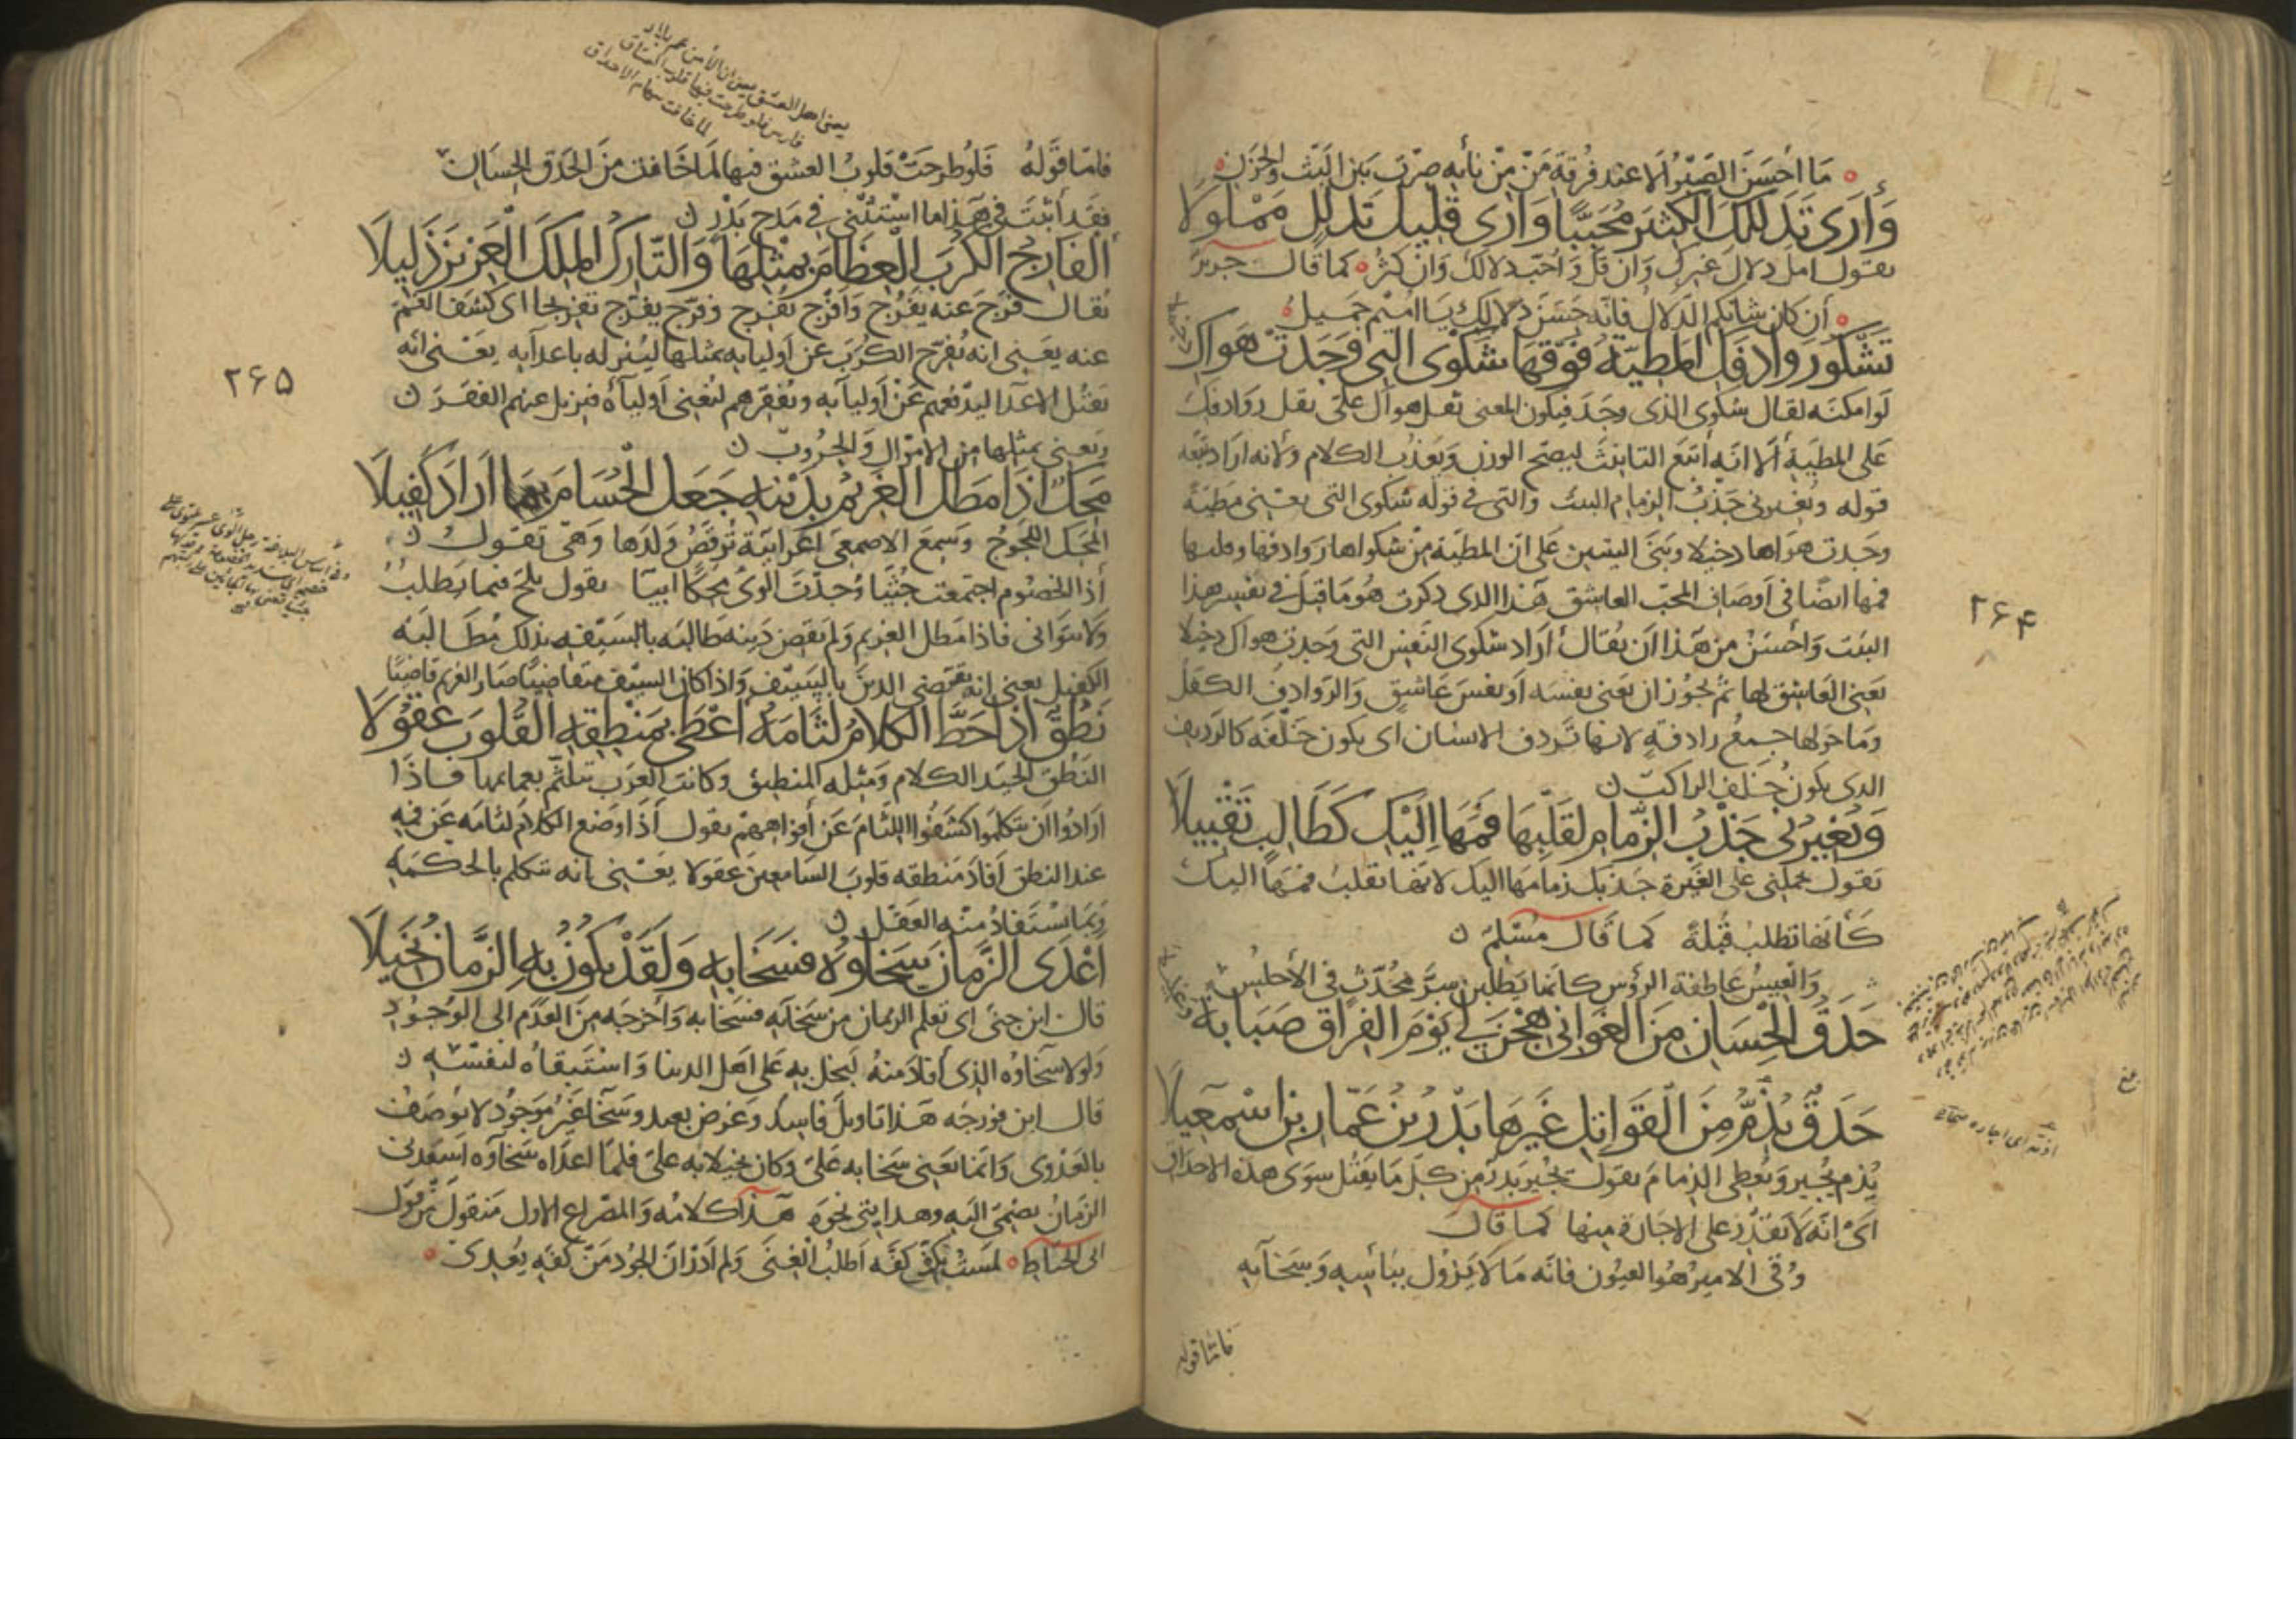 ما أحسن الصبر الا عند فرقة من من نأيه صرت بين البث والحزن
وَأرَى تَدَلُّلَكِ الكَثيرَ مُحَبَّبًا وَأرَى قَليلَ تَدَلُّلٍ مَمْلُولَا
يقول امل دلال غيرك وان قل وأحب دلالك وان كثر كما قال جرير
أن كان شانكم الدلال فانه حسن دلالك يا اميم جميل
تَشْكُو رَوَادِفَكِ المَطِيَّةُ فَوْقَهَا شَكْوَى الَّتِي وَجَدَتْ هَوَاكِ
دخيلا
لو امكنه لقال شكوى الذي وجد فيكون المعنى ثقل هواك على ثقل روادفك
على المطية ألا انه أتبع التانيث ليصح الوزن ويعذب الكلام ولانه اراد تبعه
قوله ويغيرني جذب الزمام البيت والتي في قوله شكوى التي يعني مطية
وجدت هواها دخيلا وبنى البيتين على ان المطية من شكواها روادفها وقلبها
فمها ايضا في أوصاف المحب العاشق هذا الذي ذكرت هو ما قيل في تفسير هذا
البيت وأحسن من هذا ان يقال أراد شكوى النفس التي وجدت هواك دخيلا
يعني العاشق لها ثم يجوز ان يعني نفسه أو نفس عاشق والروادف الكفل
وما حولها جمع رادفة لانها تردف الانسان اى يكون خلفه كالرديف
الذي يكون خلف الراكب
وَيُغِيرُنِي جَذْبُ الزِّمَامِ لِقَلْبِهَا فَمَهَا إلَيْكِ كَطَالِبٍ تَقْبِيلَا
يقول يحملني على الغيرة جذبك زمامها اليك لانها تقلب فمها اليك
كأنها تطلب قبلة كما قال مسلم
والعيس عاطفة الرؤس كانما يطلبن سر محدث في الأحلس
حَدَقُ الحِسَانِ مِنَ الغَوَانِي هِجْنَ لِي يَوْمَ الفِرَاقِ صَبَابَةً
وغليلا
حَدَقٌ يُذِمُّ مِنَ القَوَاتِلِ غَيْرَهَا بَدْرُ بْنُ عَمَّارِ بْنِ إسْمَعِيلَا
يذم يجير ويعطي الذمام يقول يجير بدر من كل ما يقتل سوى هذه الاحداق
اى انه لا يقدر على الاجارة منها كما قال
وقى الامير هوى العيون فانه ما لا يزول ببأسه وسخآئه
فاما قوله
٢۶۴
فاما قوله فلو طرحت قلوب العشق فيها لما خافت من الحدق الحسان
فقد أثبت في هذا ما استثنى في مدح بدر
الفَارِجُ الكُرَبَ العِظَامَ بِمِثْلِهَا وَالتَّارِكُ المَلِكَ العَزِيزَ ذَلِيلَا
يقال فرج عنه يفرج وافرج يفرج وفرج يفرج تفريجا اى كشف الغم
عنه يعني انه يفرج الكرب عن أوليائه بمثلها لينزله باعدآئه يعني انه
يقتل الاعدآ ليدفعهم عن أوليآئه ويفقرهم ليغني أوليآءه فيزيل عنهم الفقر
ويعني بمثلها من الاموال والحروب
مَحِكٌ إذَا مَطَلَ الغَرِيمُ بِدَيْنِهِ جَعَلَ الحُسَامَ بِمَا أرَادَ كَفِيلَا
المحك اللجوج وسمع الاصمعي اعرابية ترقص ولدها وهى تقول
أذا الخصوم اجتمعت جثيا وجدت الوى محكا ابيا يقول يلح فيما يطلب
ولا يتوانى فاذا مطل الغريم ولم يقض دينه طالبه بالسيف بذلك مطالبة
الكفيل يعني انه يقتضي الدين بالسيف واذا كان السيف متقاضيا صار الغريم قاضيا
نَطِقٌ إذَا حَطَّ الكَلَامُ لِثَامَهُ أعْطَى بِمَنْطِقِهِ القُلُوبَ عُقُولَا
النطق الجيد الكلام ومثله المنطيق وكانت العرب تتلثم بعمائمها فاذا
ارادوا ان يتكلموا كشفوا اللثام عن أفواههم يقول أذا وضع الكلام لثامه عن فمه
عند النطق أفاد منطقه قلوب السامعين عقولا يعني انه يتكلم بالحكمة
وبما يستفاد منه العقل
أعْدَى الزَّمَانَ سَخَاؤُهُ فَسَخَا بِهِ وَلَقَدْ يَكُونُ بِهِ الزَّمَانُ بَخِيلَا
قال ابن جنى اى تعلم الزمان من سخآئه فسخا به وأخرجه من العدم الى الوجود
ولولا سخاوه الذي أفاد منه لبخل به على اهل الدنيا واستبقاه لنفسه
قال ابن فورجه هذا تاويل فاسد وغرض بعيد وسخا غير موجود لا يوصف
بالعدوى وانما يعني سخا به على وكان بخيلا به على فلما اعداه سخآوه اسعدني
الزمان بضمى اليه وهدايتي نحوه هذا كلامه والمصراع الاول منقول من قول
ابن الخياط لمست بكفى كفه اطلب الغنى ولم أدر ان الجود من كفه يعدى
٢۶۵
يعنى اهل العشق